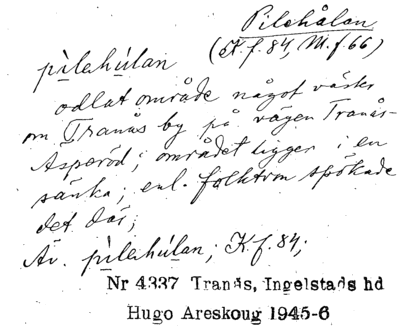 Pilehålan
(K.f. 84, M.f. 66)
pìlehúlan
odlat område något väster
om Tranås by på vägen Tranås-
Asperöd; området ligger i en
sänka; enl. folktron spökade
det där;
Äv. pìlehúlan; K.f. 84;
Nr 4337 Tranås, Ingelstads hd
Hugo Areskoug 1945-6